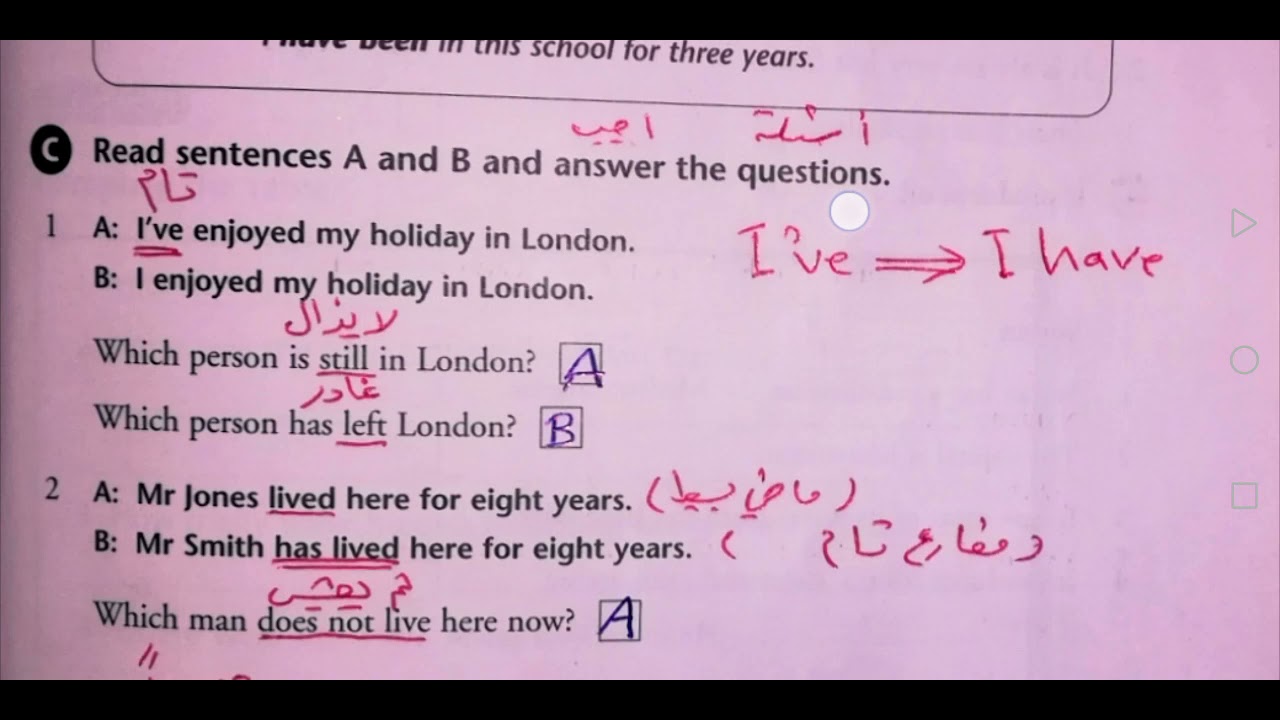 I have been in this school for three years.
أسئلة اجب
C Read sentences A and B and answer the questions.
تام
1 A: I've enjoyed my holiday in London.
I've ⇒ I have
B: I enjoyed my holiday in London.
لا يزال
Which person is still in London? A
غادر
Which person has left London? B
2 A: Mr Jones lived here for eight years. (ماضي بسيط)
B: Mr Smith has lived here for eight years. (مضارع تام)
Which man does not live here now? A
"